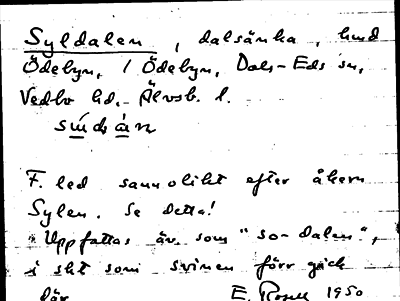 Syldalen, dalsänka, hmd
Ödebyn, 1 Ödebyn, Dals-Eds sn,
Vedbo hd. Älvsb. l.
F. led sannolikt efter åkern
Sylen. Se detta!
Uppfattas äv. som "so-dalen",
i sht som svinen förr gick
där. E. Rosell 1950